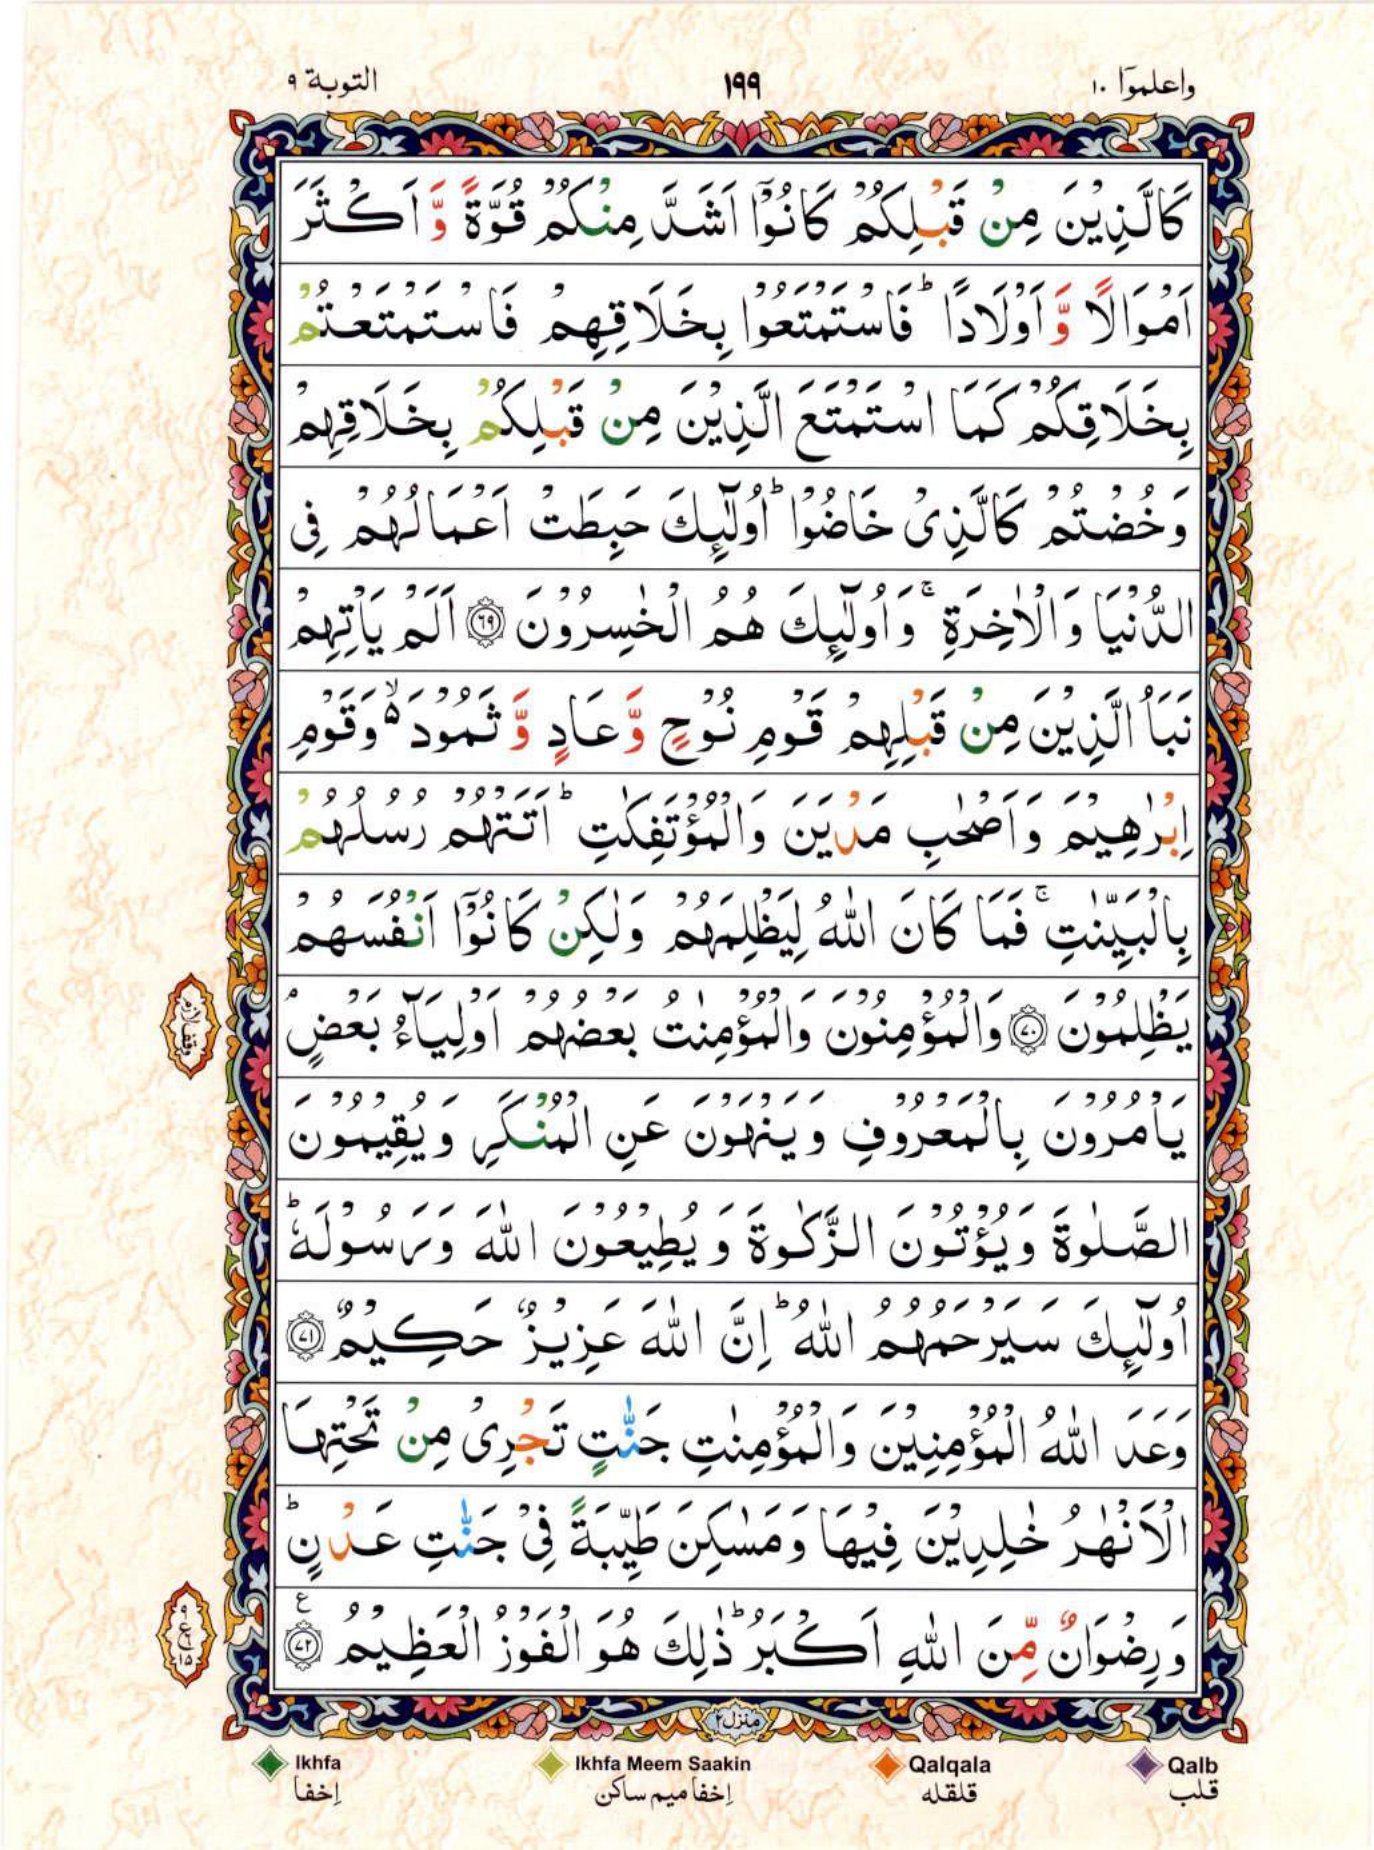 واعلموۤا ١٠
١٩٩
التوبة ٩
كَالَّذِيْنَ مِنْ قَبْلِكُمْ كَانُوْۤا اَشَدَّ مِنْكُمْ قُوَّةً وَّ اَكْثَرَ
اَمْوَالًا وَّ اَوْلَادًا ؕ فَاسْتَمْتَعُوْا بِخَلَاقِهِمْ فَاسْتَمْتَعْتُمْ
بِخَلَاقِكُمْ كَمَا اسْتَمْتَعَ الَّذِيْنَ مِنْ قَبْلِكُمْ بِخَلَاقِهِمْ
وَخُضْتُمْ كَالَّذِىْ خَاضُوْا ؕ اُولٰٓئِكَ حَبِطَتْ اَعْمَالُهُمْ فِى
الدُّنْيَا وَالْاٰخِرَةِ ۚ وَاُولٰٓئِكَ هُمُ الْخٰسِرُوْنَ ﴿٦٩﴾ اَلَمْ يَاْتِهِمْ
نَبَاُ الَّذِيْنَ مِنْ قَبْلِهِمْ قَوْمِ نُوْحٍ وَّعَادٍ وَّ ثَمُوْدَ ۙ۬ وَقَوْمِ
اِبْرٰهِيْمَ وَاَصْحٰبِ مَدْيَنَ وَالْمُؤْتَفِكٰتِ ؕ اَتَتْهُمْ رُسُلُهُمْ
بِالْبَيِّنٰتِ ۚ فَمَا كَانَ اللّٰهُ لِيَظْلِمَهُمْ وَلٰكِنْ كَانُوْۤا اَنْفُسَهُمْ
يَظْلِمُوْنَ ﴿٧٠﴾ وَالْمُؤْمِنُوْنَ وَالْمُؤْمِنٰتُ بَعْضُهُمْ اَوْلِيَآءُ بَعْضٍ ۘ
وقف لازم
يَاْمُرُوْنَ بِالْمَعْرُوْفِ وَيَنْهَوْنَ عَنِ الْمُنْكَرِ وَيُقِيْمُوْنَ
الصَّلٰوةَ وَيُؤْتُوْنَ الزَّكٰوةَ وَيُطِيْعُوْنَ اللّٰهَ وَرَسُوْلَهٗ ؕ
اُولٰٓئِكَ سَيَرْحَمُهُمُ اللّٰهُ ؕ اِنَّ اللّٰهَ عَزِيْزٌ حَكِيْمٌ ﴿٧١﴾
وَعَدَ اللّٰهُ الْمُؤْمِنِيْنَ وَالْمُؤْمِنٰتِ جَنّٰتٍ تَجْرِىْ مِنْ تَحْتِهَا
الْاَنْهٰرُ خٰلِدِيْنَ فِيْهَا وَمَسٰكِنَ طَيِّبَةً فِىْ جَنّٰتِ عَدْنٍ ؕ
وَرِضْوَانٌ مِّنَ اللّٰهِ اَكْبَرُ ؕ ذٰلِكَ هُوَ الْفَوْزُ الْعَظِيْمُ ﴿٧٢﴾ ع
٩ ع ١٥
منزل ٢
Ikhfa Ikhfa Meem Saakin Qalqala Qalb
إخفا إخفا میم ساکن قلقله قلب